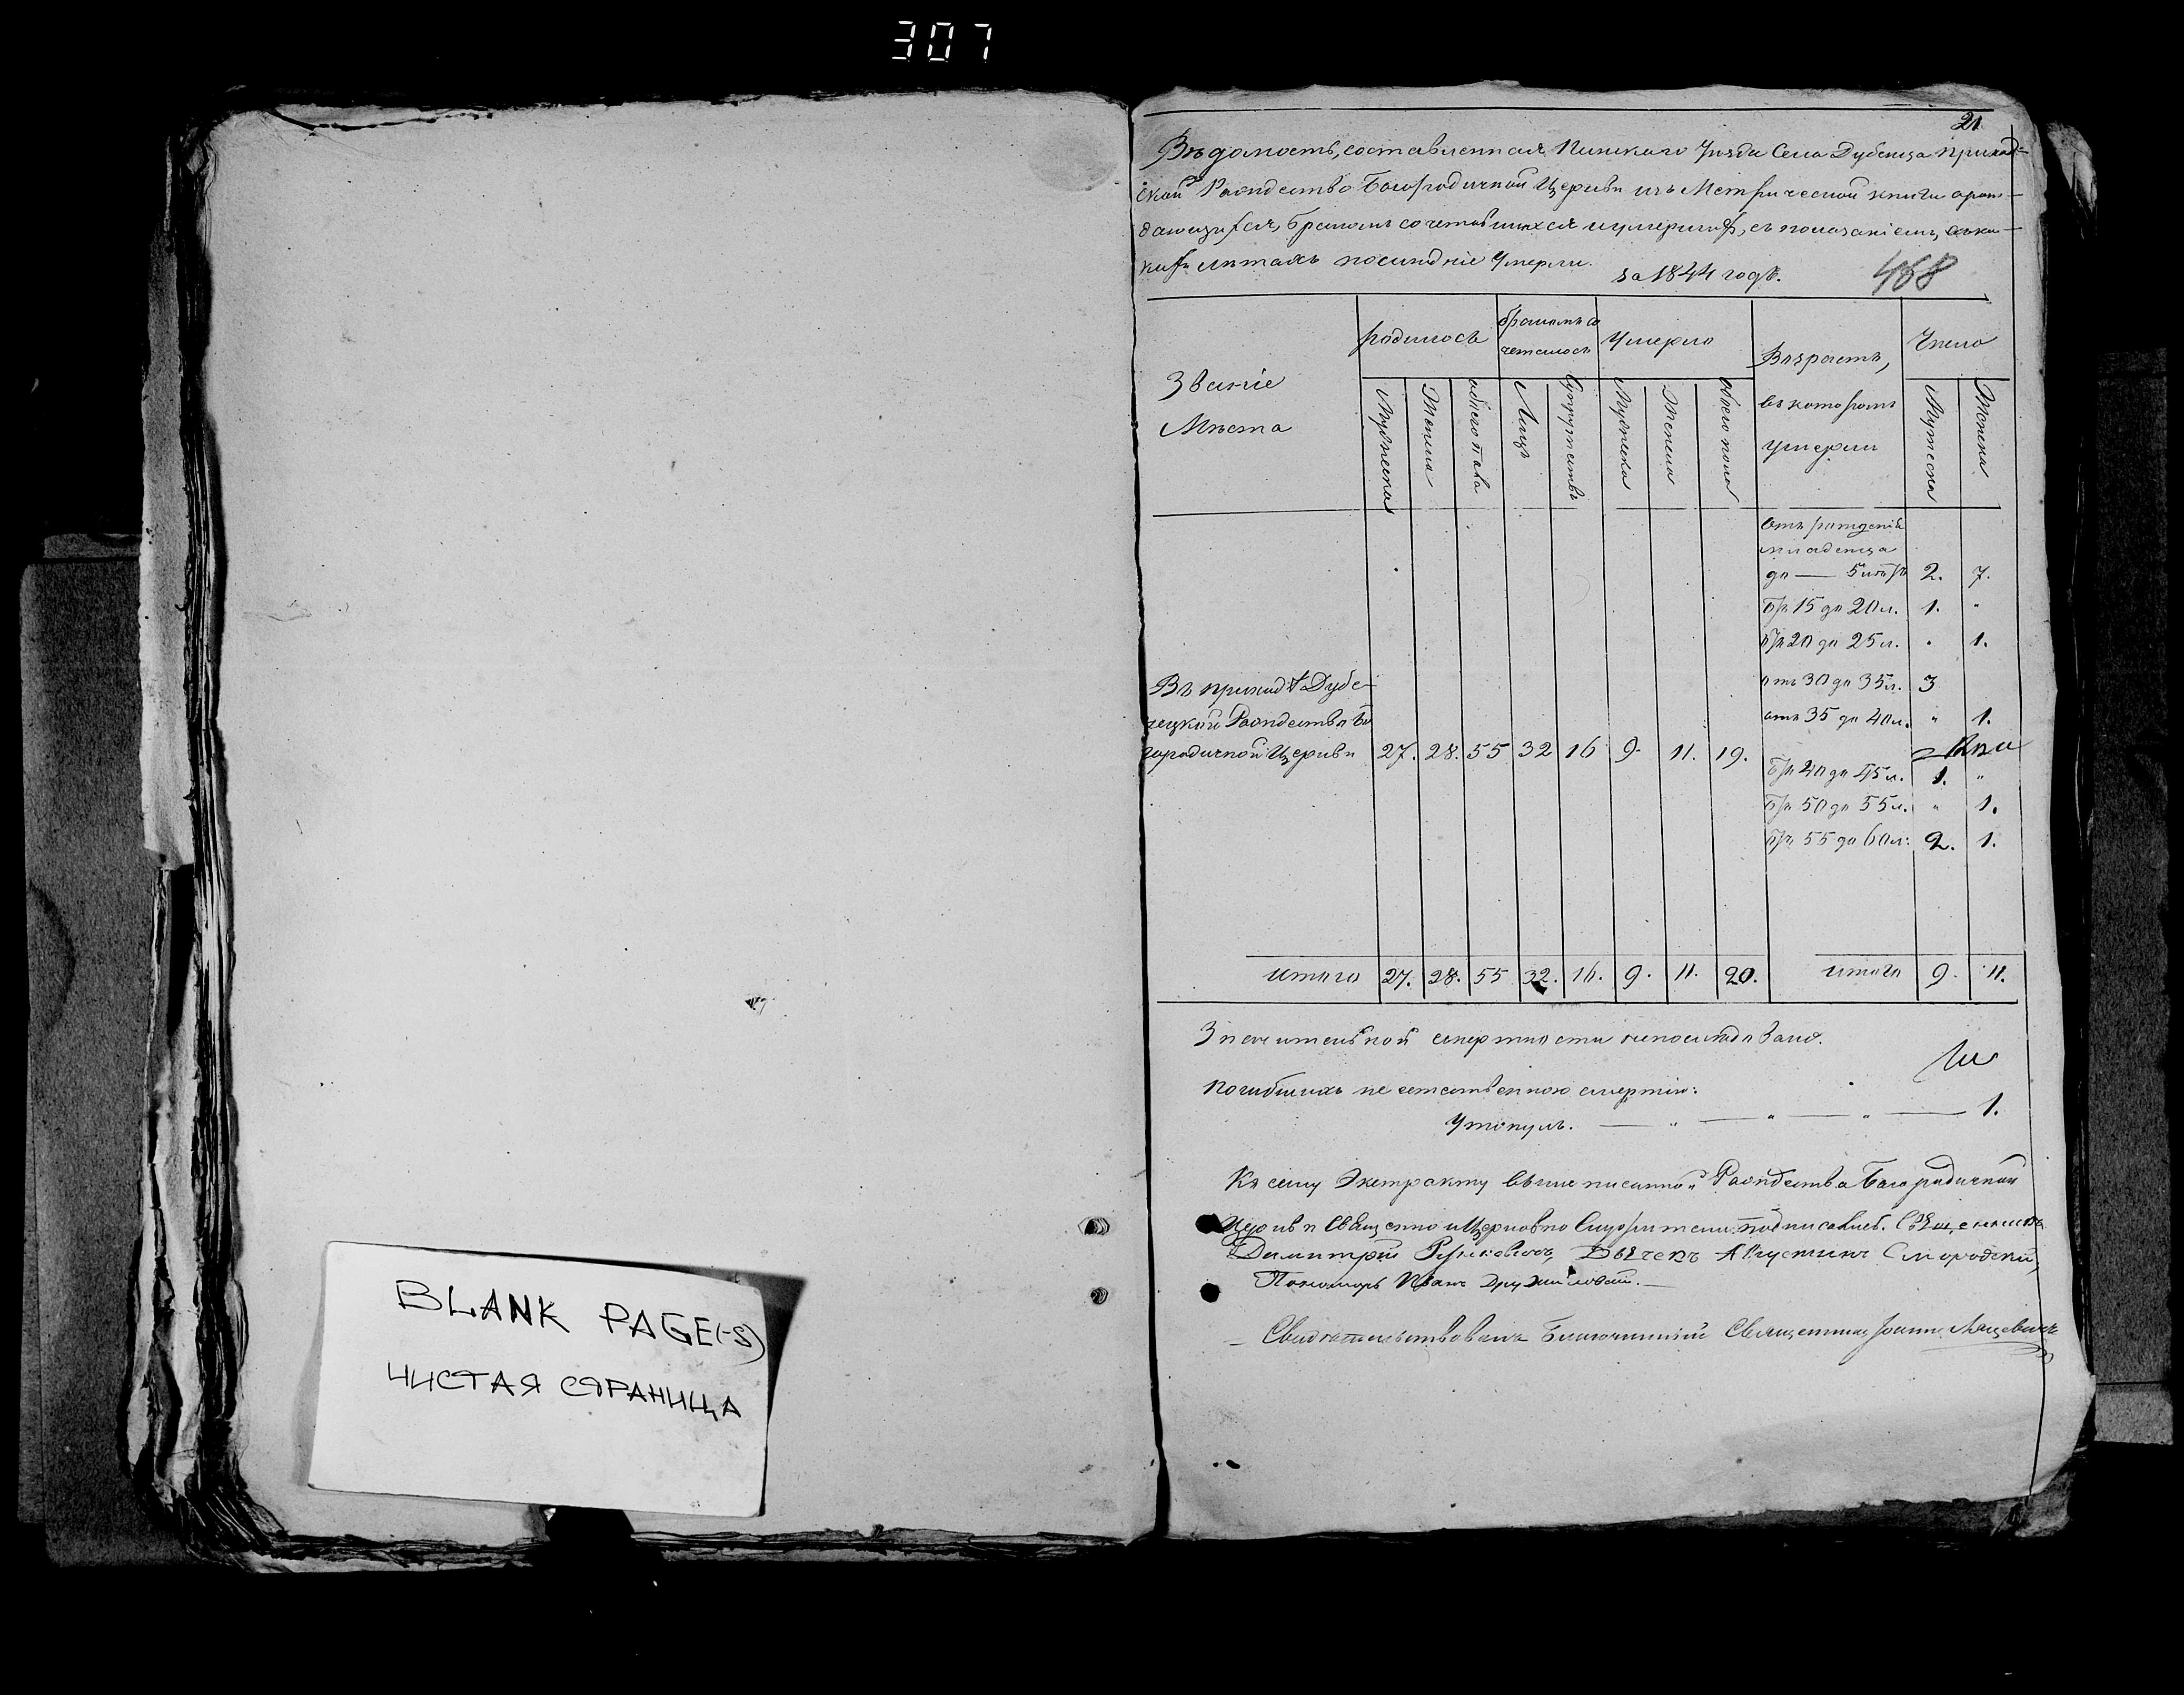 307
BLANK PAGE(-S)
ЧИСТАЯ СТРАНИЦА
21
Вѣдомость, составленная Пинскаго Уѣзда Села Дубенца приход-
ской Рождество Богородичной Церкви изъ Метрической книги о рож-
дающихся, бракомъ сочетавшихся и умершихъ, съ показаніемъ, въ ка-
кихъ лѣтахъ послѣдніе умерли.
за 1844 годъ.
468
Званіе
Мѣста
родилось
бракомъ со
четалось
Умерло
Возрастъ,
въ которомъ
умерли
Число
Мужеска
Женска
обоего пола
Лицъ
Супружествъ
Мужеска
Женска
обоего пола
Мужеска
Женска
отъ рожденія
младенца
до — 5 лѣтъ 2. 7.
отъ 15 до 20 л. 1. "
отъ 20 до 25 л. " 1.
отъ 30 до 35 л. 3
отъ 35 до 40 л. " 1.
Въ приходѣ Дубе-
нецкой Рождество Бо
городичной Церкви 27. 28. 55 32 16 9. 11. 19.
отъ 40 до 45 л. 1. "
отъ 50 до 55 л. " 1.
отъ 55 до 60 л: 2. 1.
итого 27. 28. 55 32. 16. 9. 11. 20. итого 9. 11.
Значительной смертности непослѣдовало.
Погибшихъ не естественною смертію:
Утонулъ. — " — " — " — 1.
Къ сему Экстракту вышеписанной Рождества Богородичной
Церкви Священно и Церковно Служители подписались. Священникъ
Димитрій Дьячекъ Августинъ Смородскій,
Пономарь Иванъ Дружиловскій.
Свидѣтельствовалъ Благочинный Священникъ Іоаннъ Мацевичъ